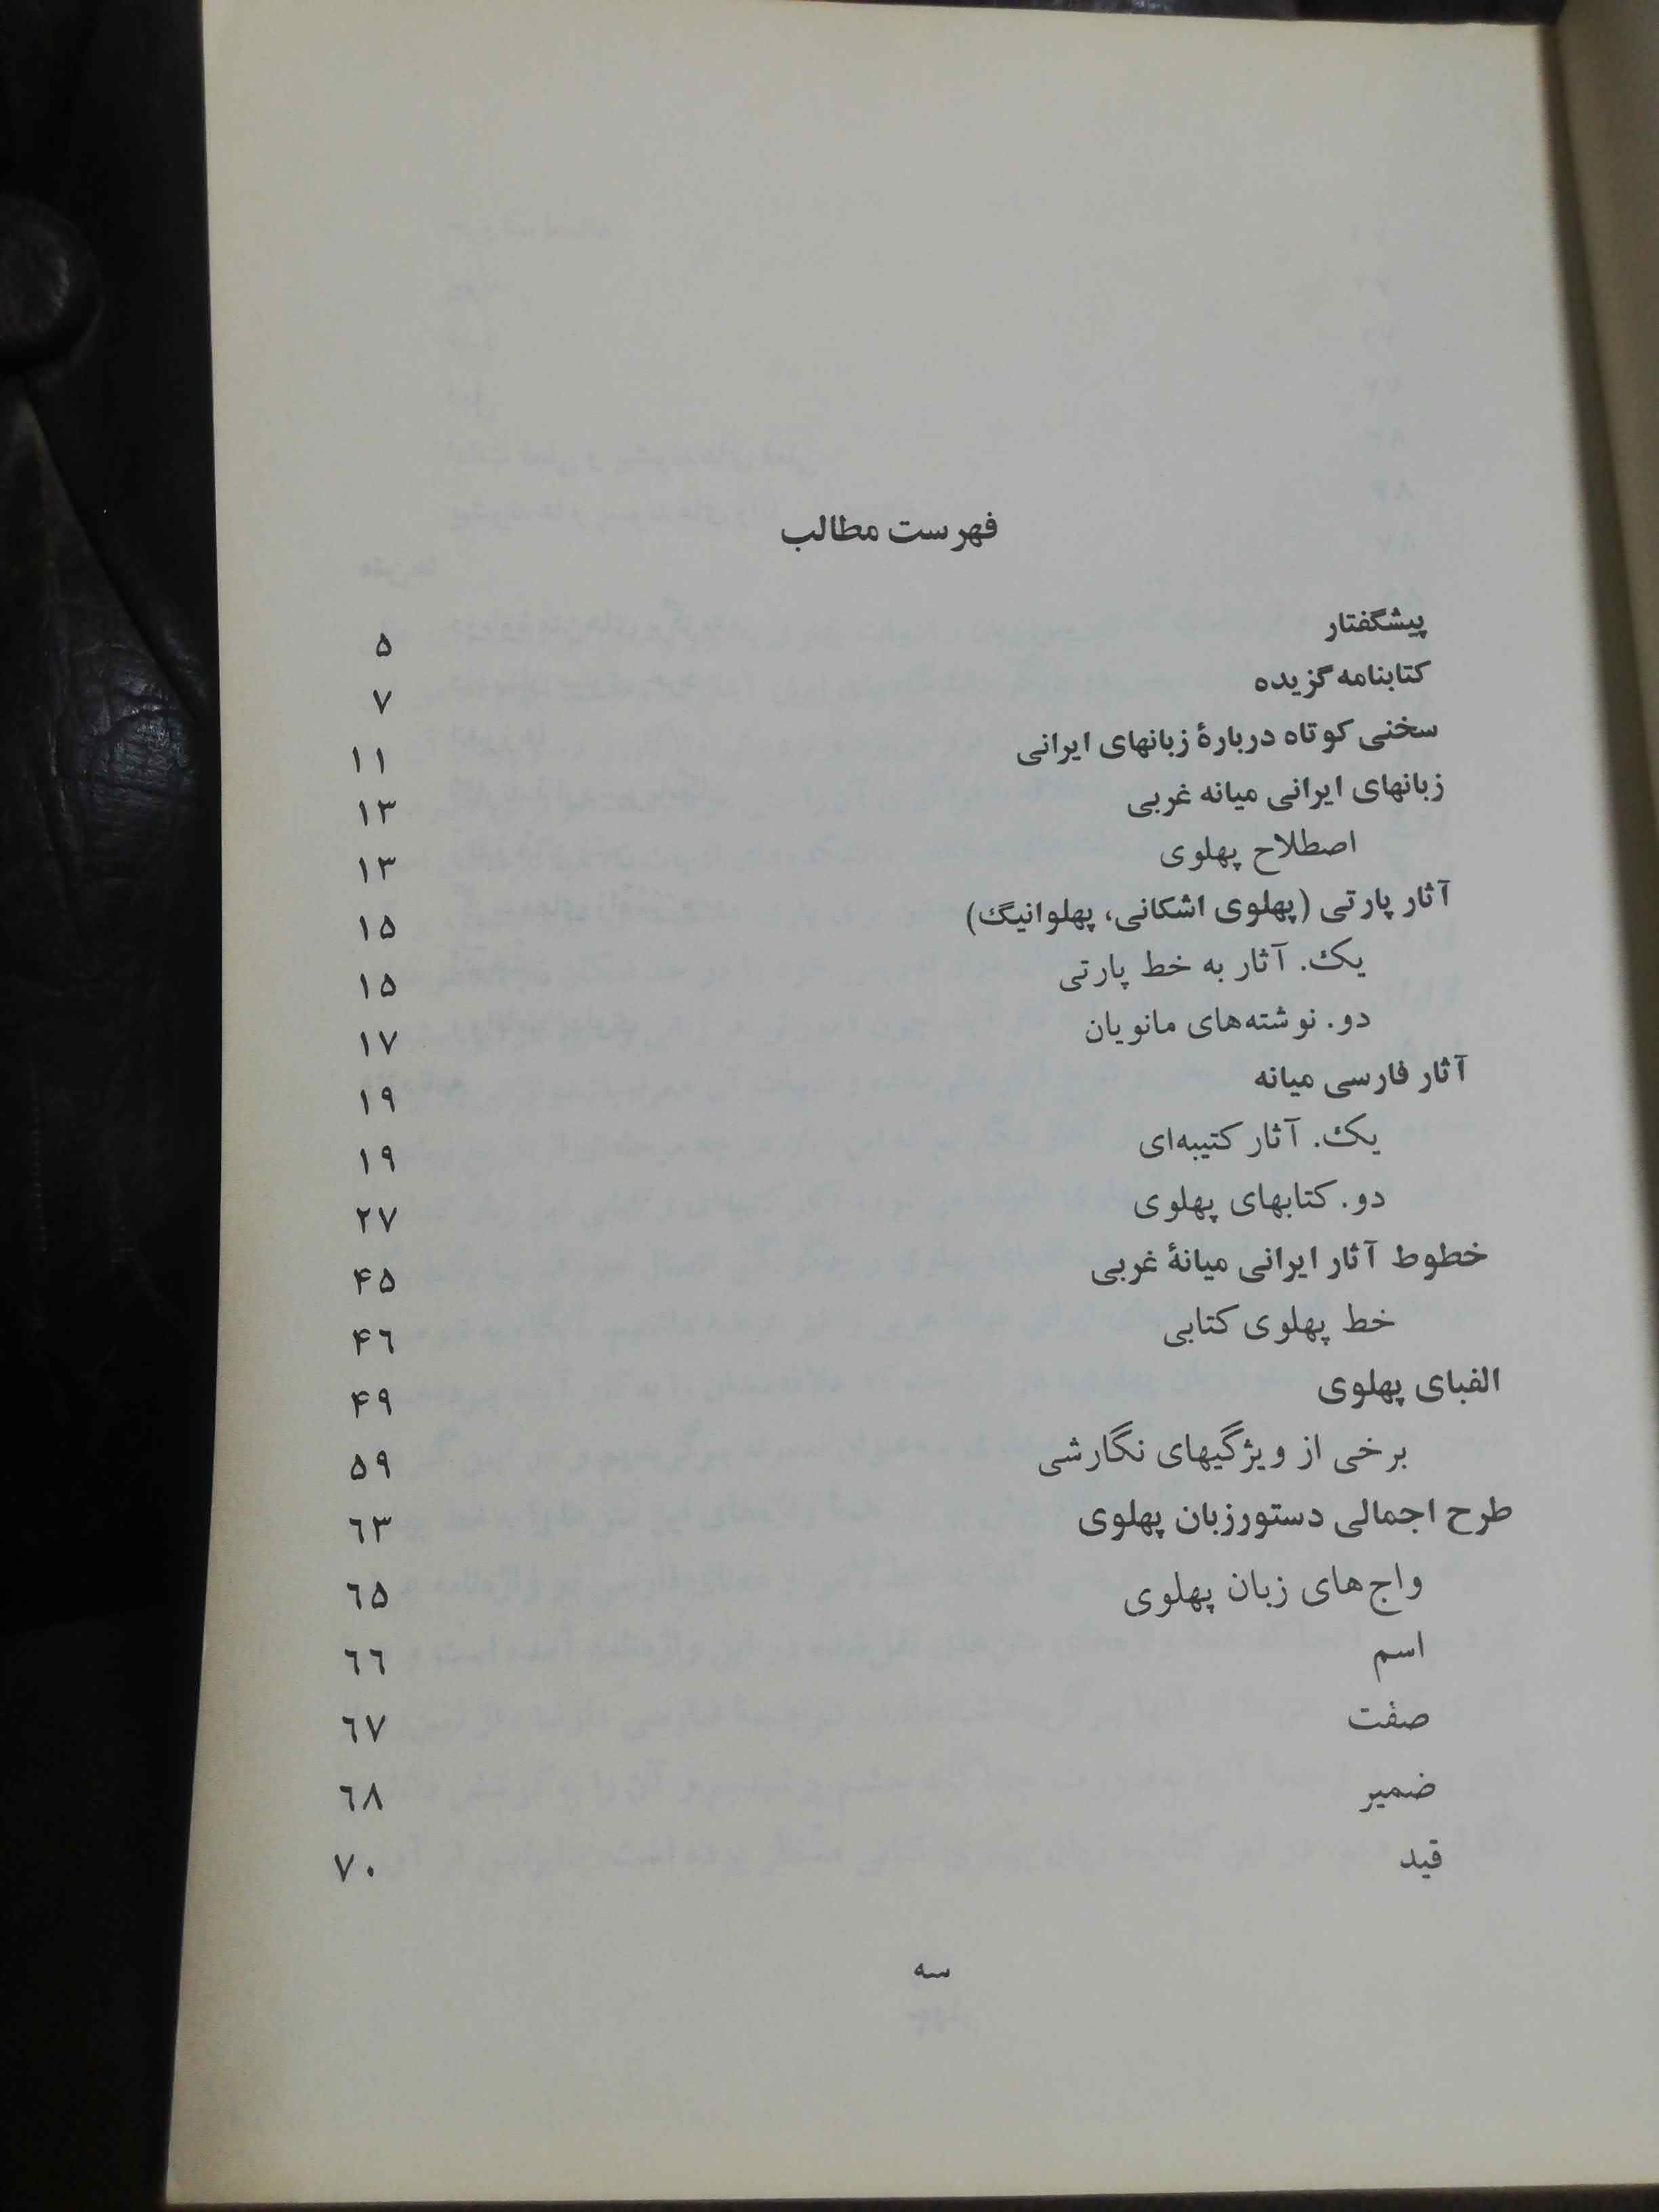 فهرست مطالب
پیشگفتار ۵
کتابنامه گزیده ۷
سخنی کوتاه دربارهٔ زبانهای ایرانی ۱۱
زبانهای ایرانی میانه غربی ۱۳
اصطلاح پهلوی ۱۳
آثار پارتی (پهلوی اشکانی، پهلوانیگ) ۱۵
یک. آثار به خط پارتی ۱۵
دو. نوشته‌های مانویان ۱۷
آثار فارسی میانه ۱۹
یک. آثار کتیبه‌ای ۱۹
دو. کتابهای پهلوی ۲۷
خطوط آثار ایرانی میانهٔ غربی ۴۵
خط پهلوی کتابی ۴۶
الفبای پهلوی ۴۹
برخی از ویژگیهای نگارشی ۵۹
طرح اجمالی دستور زبان پهلوی ۶۳
واج‌های زبان پهلوی ۶۵
اسم ۶۶
صفت ۶۷
ضمیر ۶۸
قید ۷۰
سه